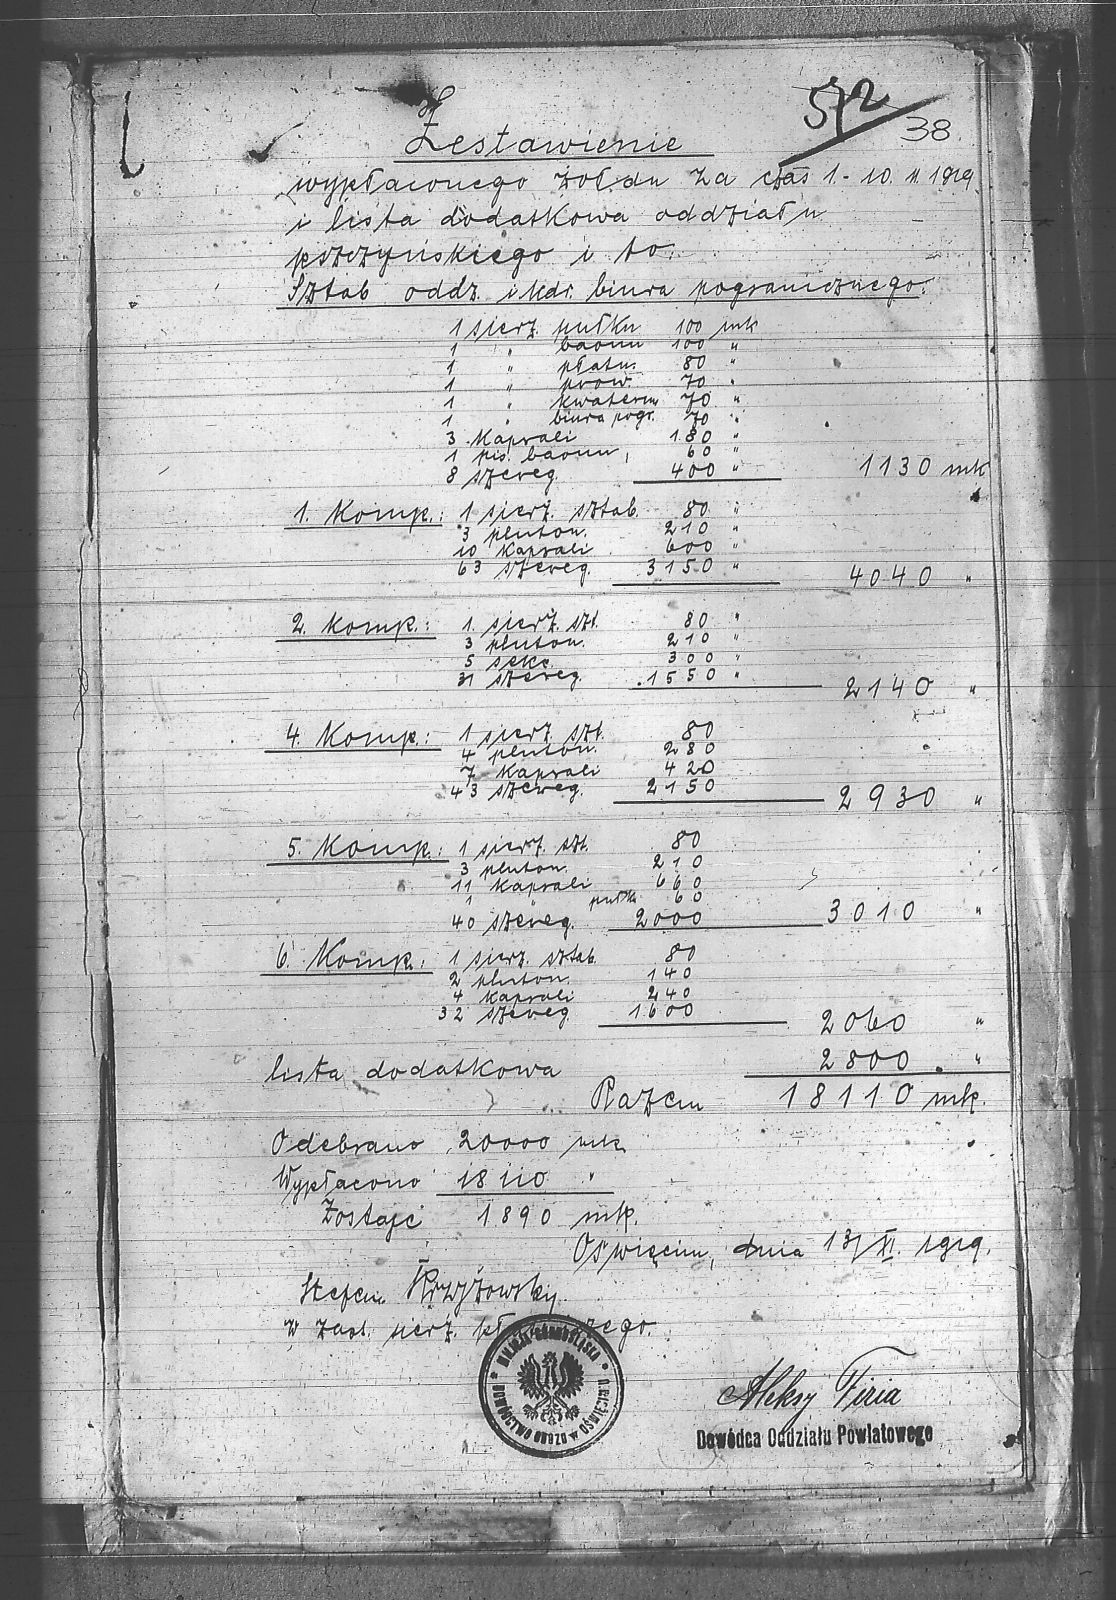 572
38
Zestawienie
wypłaconego żołdu za czas 1-10. 11. 1919.
i lista dodatkowa oddziału
pszczyńskiego i to:
Sztab oddz. i kdr. biura pogranicznego.
1 sierż. pułku 100 mk
1 " baonu 100 "
1 " płatn. 80 "
1 " prow. 70 "
1 " kwaterm. 70 "
1 " biura pogr. 70 "
3 Kaprali 180 "
1 pis. baonu, 60 "
8 szereg. 400 " 1130 mk
1. Komp.: 1 sierż. sztab. 80 "
3 pluton. 210 "
10 Kaprali 600 "
63 szereg. 3150 " 4040 "
2. Komp.: 1. sierż. szt. 80 "
3 pluton. 210 "
5 sekc. 300 "
31 szereg. 1550 " 2140 "
4. Komp.: 1 sierż. szt. 80
4 pluton. 280
7 Kaprali 420
43 szereg. 2150 2930 "
5. Komp.: 1 sierż. szt. 80
3 pluton. 210
11 Kaprali 660
1 " pułk. 60
40 szereg. 2000 3010 "
6. Komp.: 1 sierż. sztab. 80
2 pluton. 140
4 kaprali 240
32 szereg. 1600 2060 "
lista dodatkowa 2800 "
Razem 18110 mk.
Odebrano 20000 mk
Wypłacono 18110 "
Zostaje 1890 mk.
Oświęcim, dnia 13/XI. 1919.
Stefan Krzyżowsky
w zast. sierż.
MILICJA GÓRNOŚLĄSKA
DOWÓDZTWO OBOZU W OŚWIĘCIMIU
Aleksy Firia
Dowódca Oddziału Powiatowego